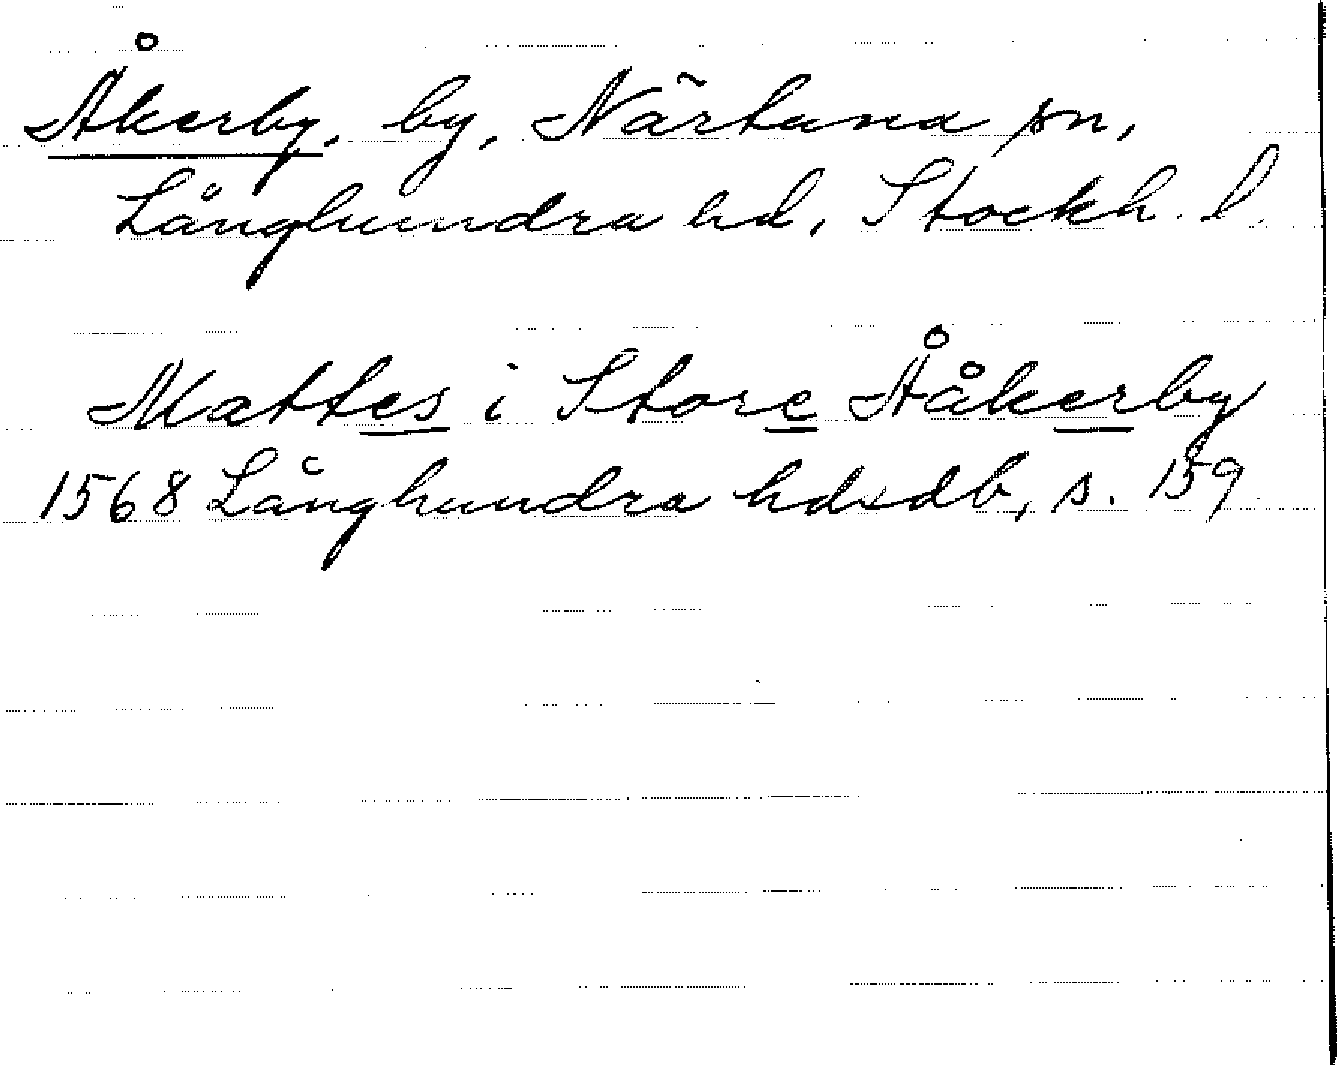 Åkerby, by, Närtuna sn,
Långhundra hd, Stockh. l.
Mattes i Store Ååkerby
1568 Långhundra hdsdb, s. 159